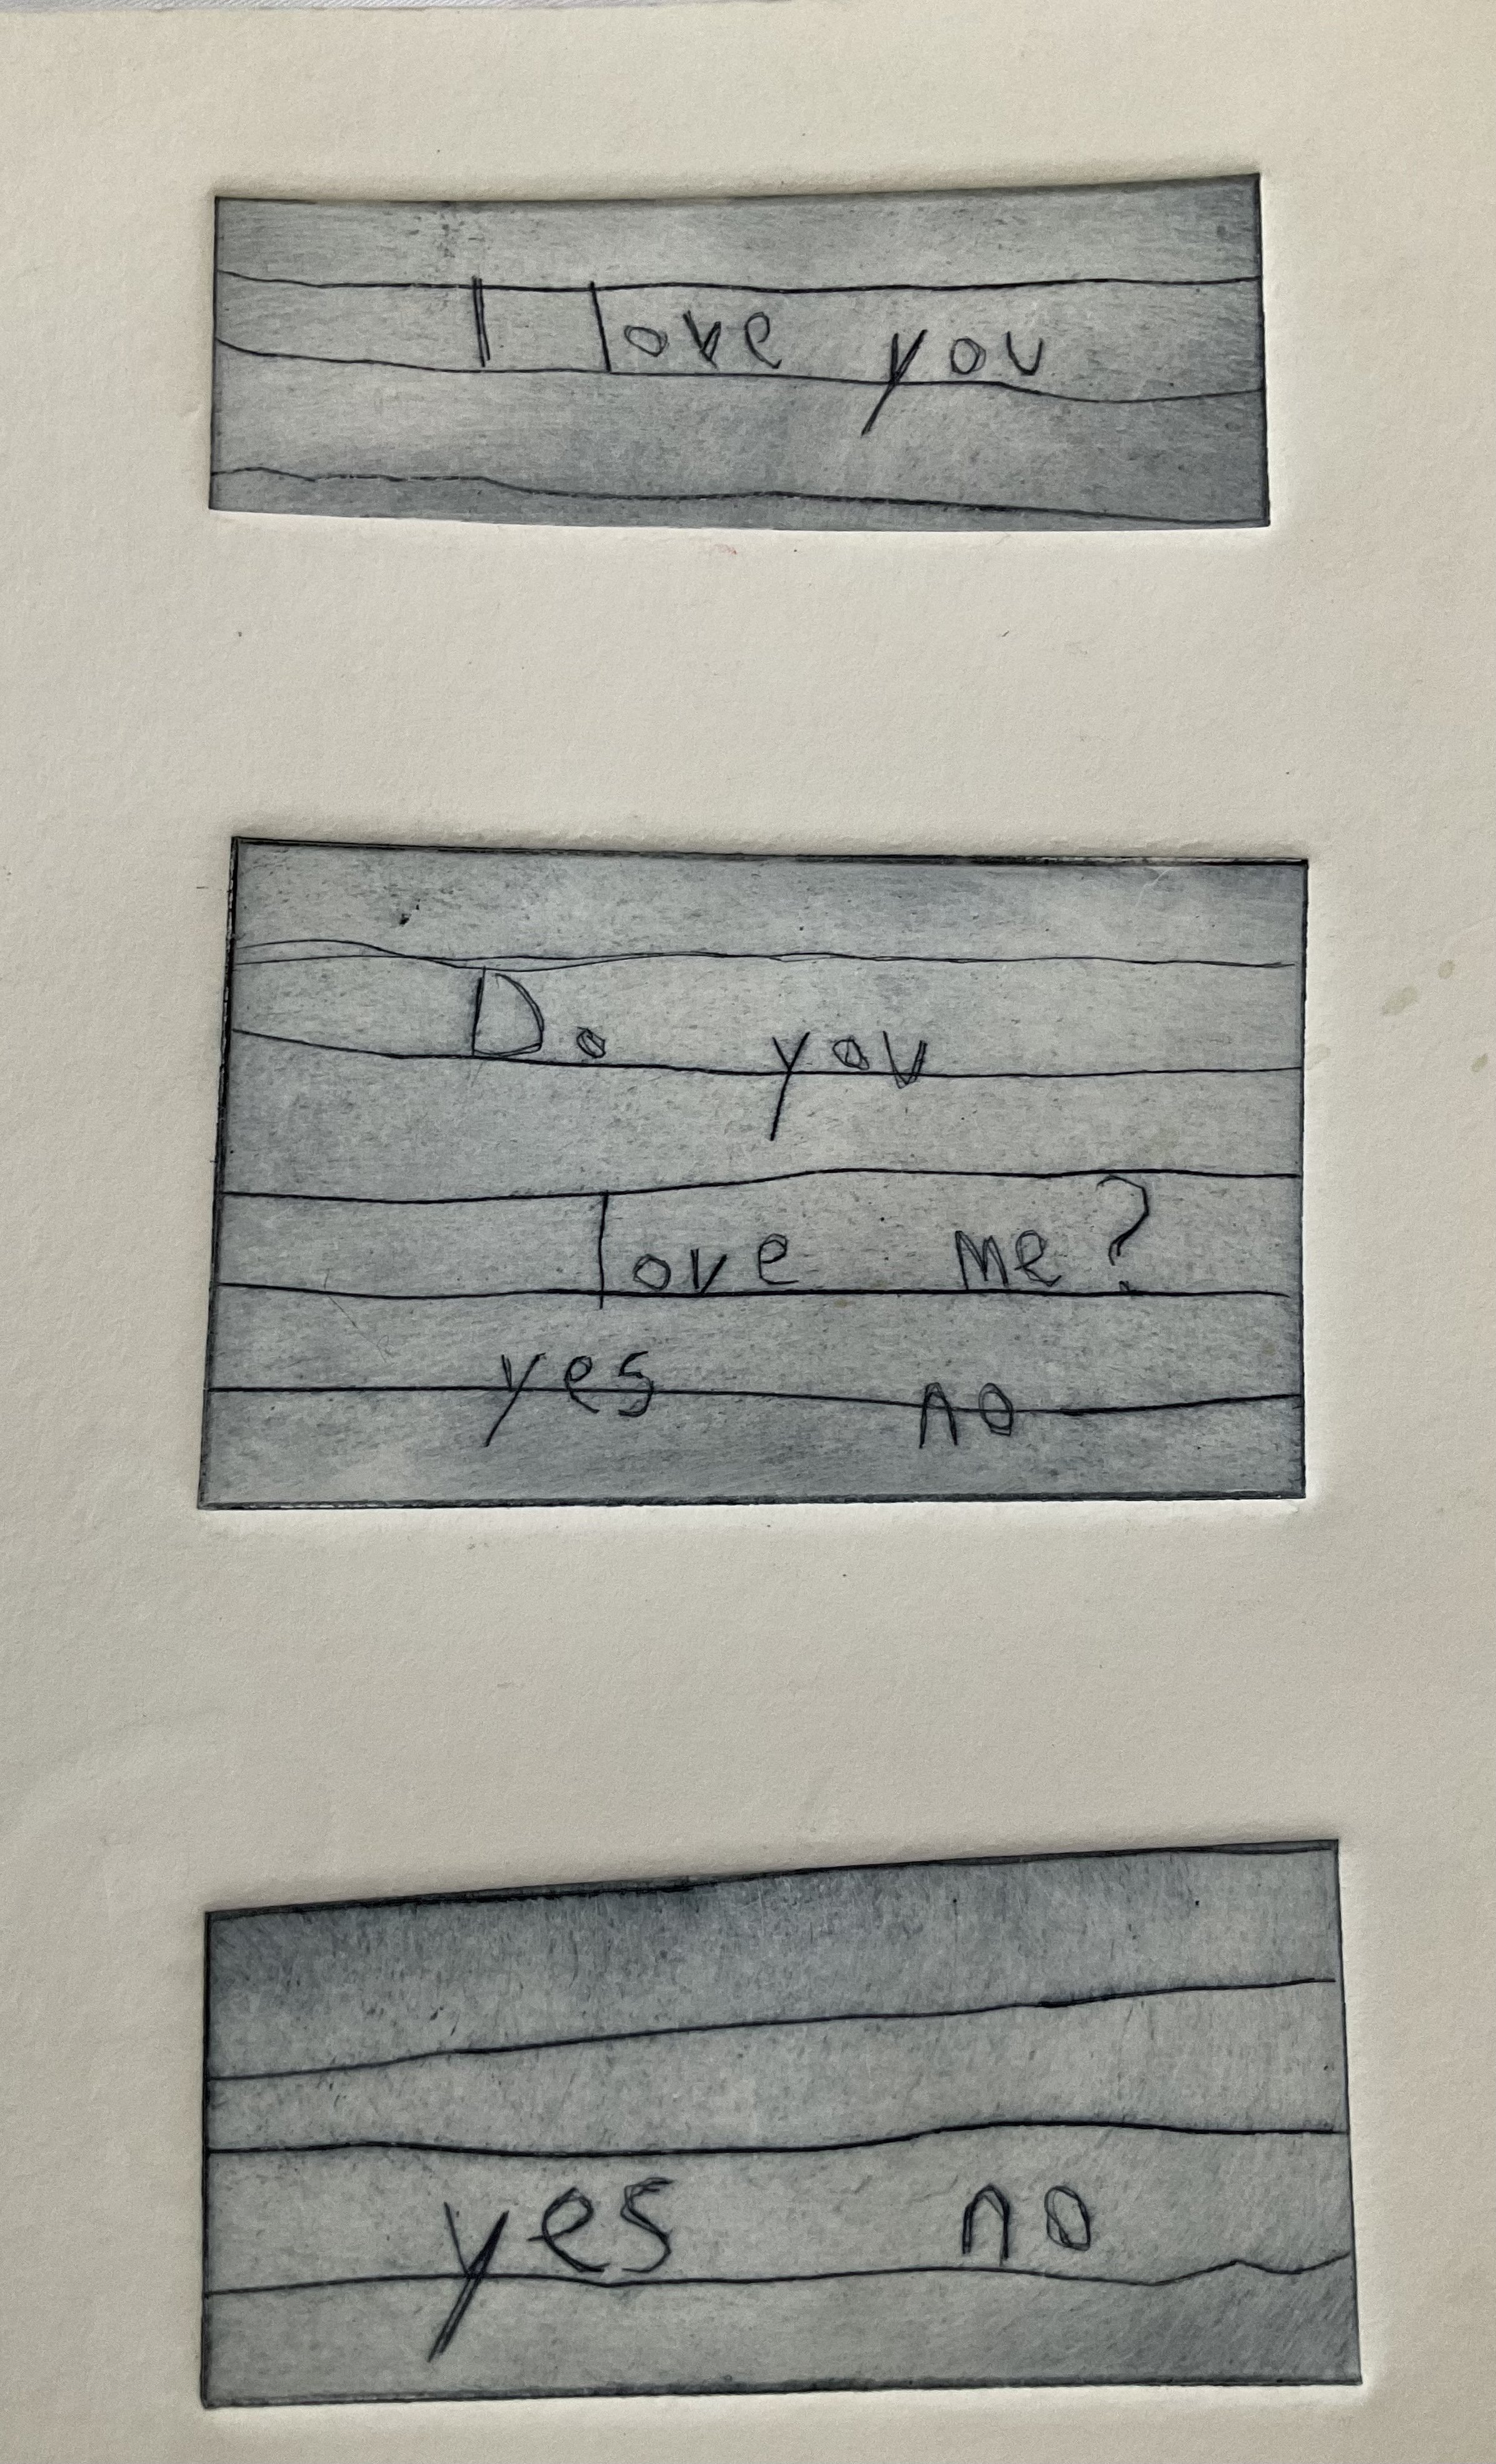 I love you
Do you
love me?
yes no
yes no